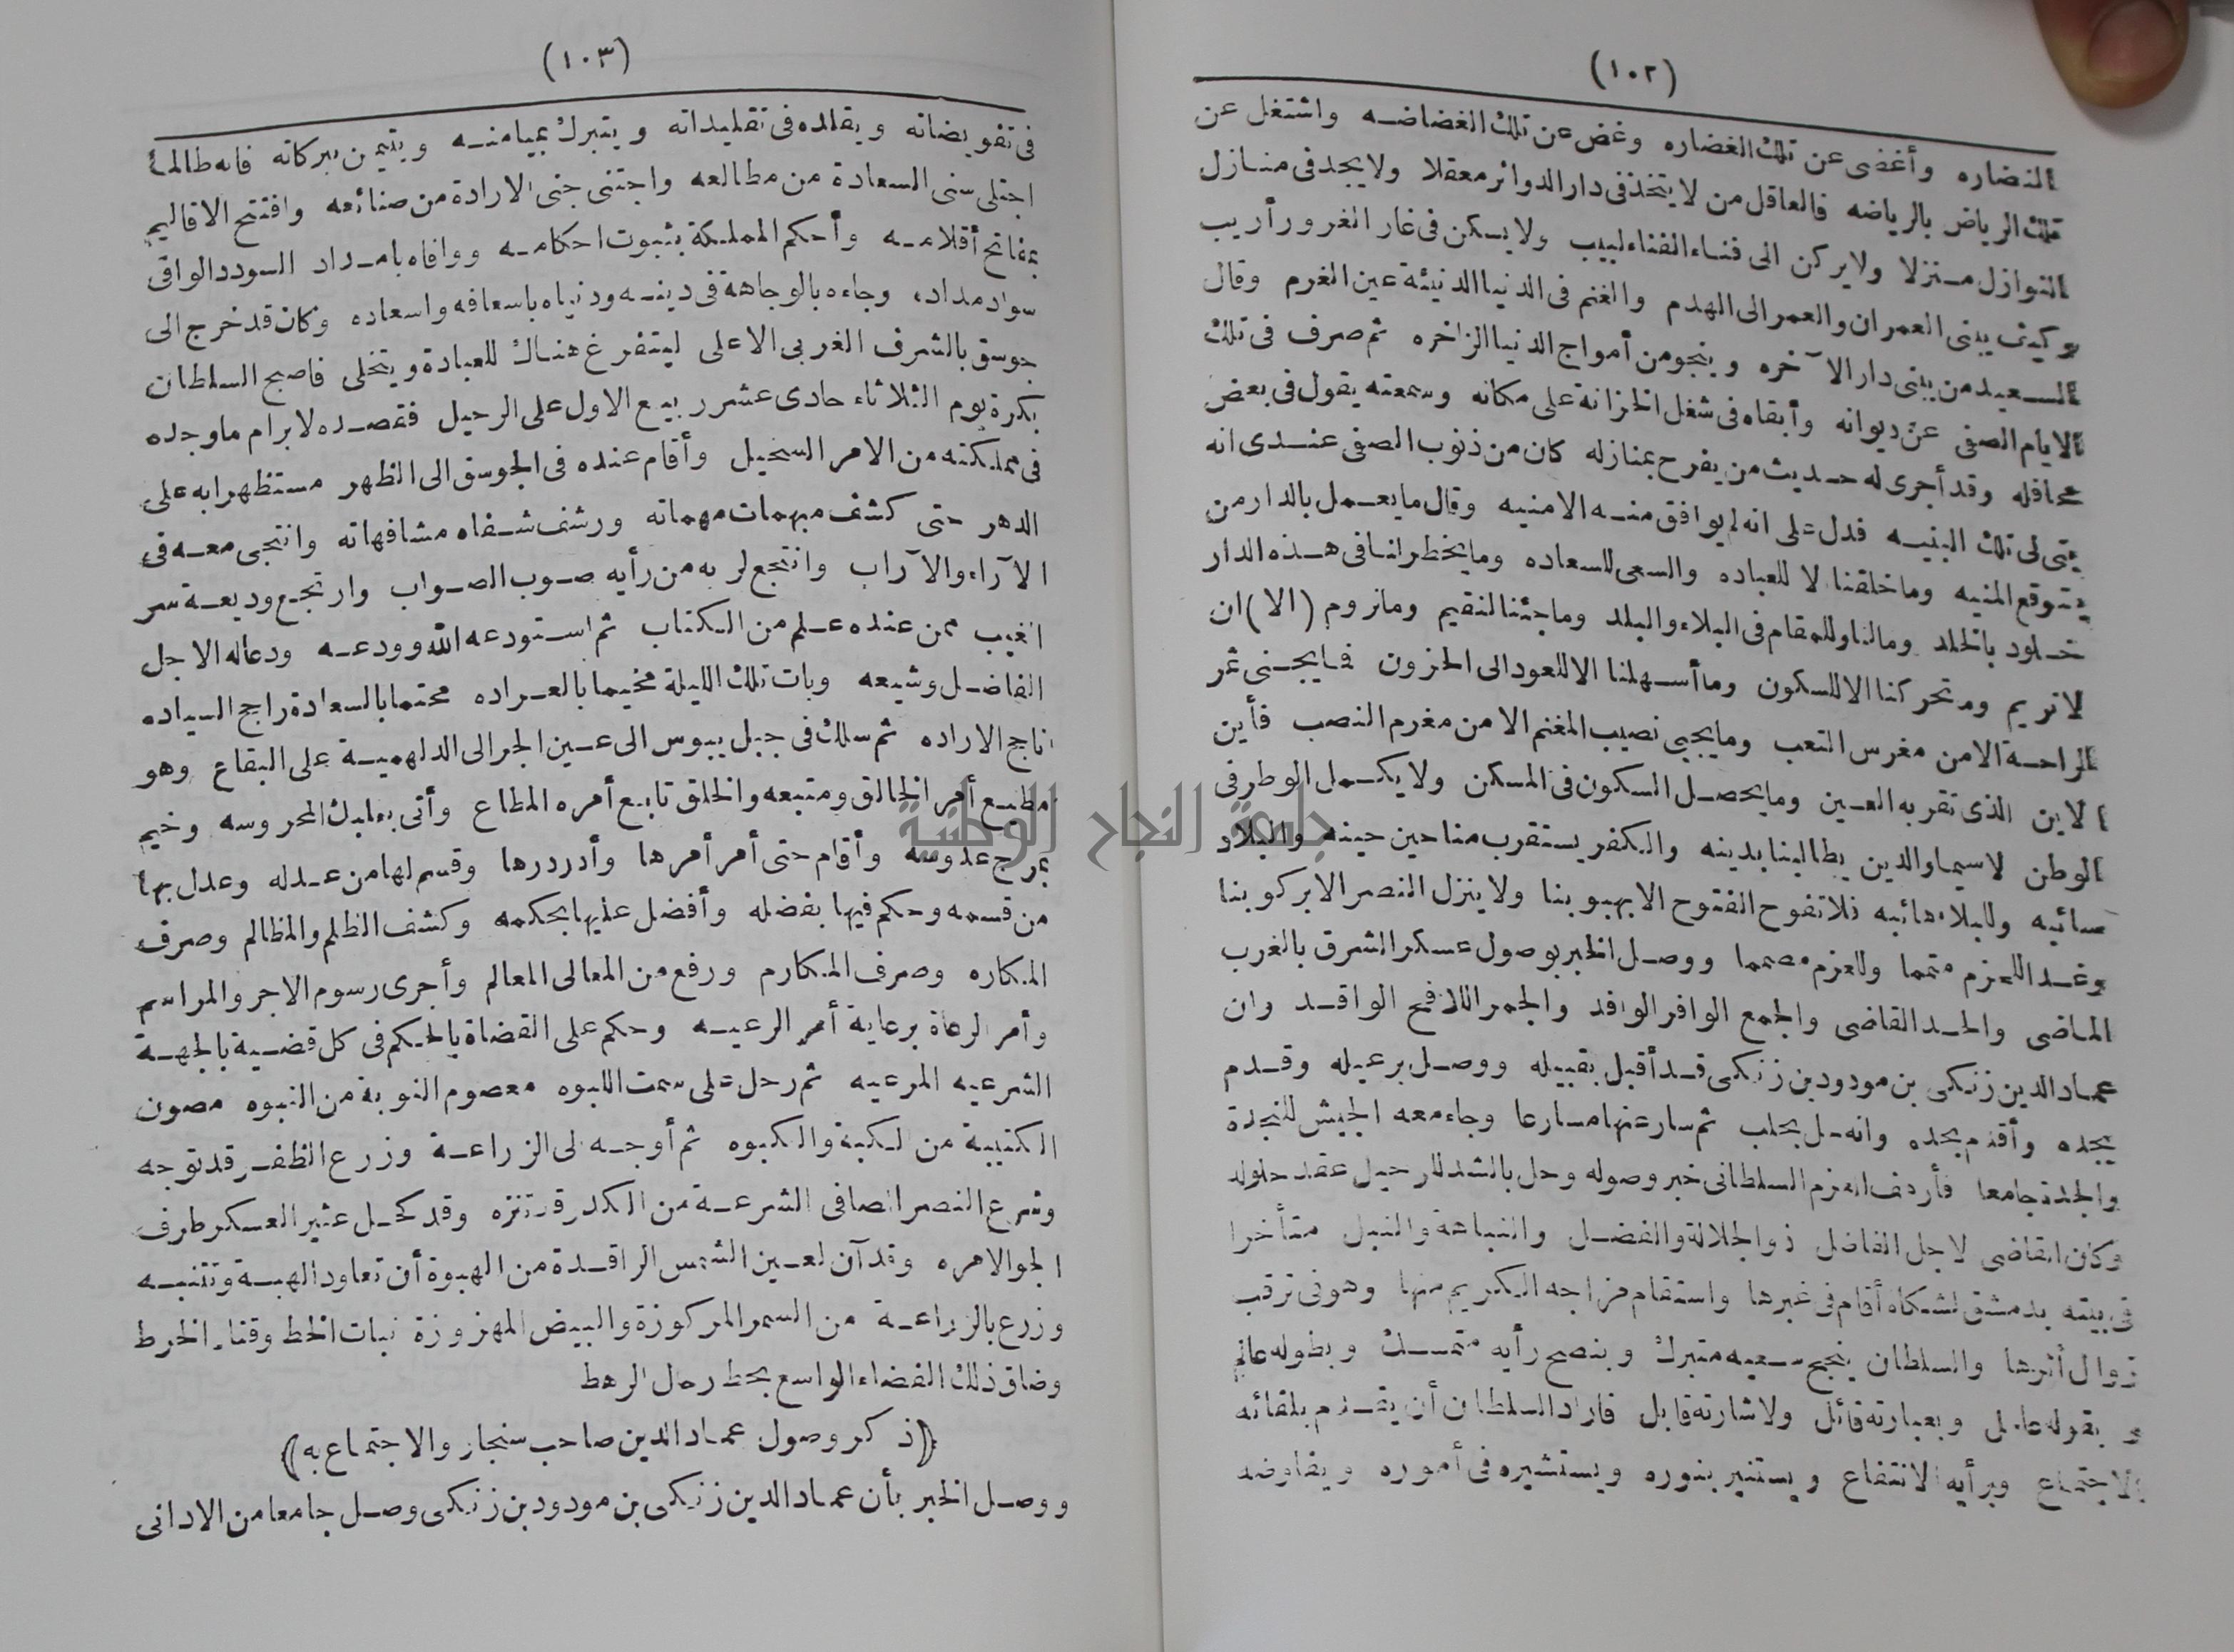 (١٠٢)
النضاره وأغضى عن تلك الغضاره وغض عن تلك الغضاضه واشتغل عن
تلك الرياض بالرياضه فالعاقل من لا يتخذ فى دار الدوائر معقلا ولا يجد فى منازل
النوازل منزلا ولا يركن الى فناء الفناء لبيب ولا يسكن فى غار الغرور أريب
وكيف يبنى العمران والعمر الى الهدم والغنم فى الدنيا الدنيئة عين الغرم وقال
السعيد من يبنى دار الآخره وينجو من أمواج الدنيا الزاخره ثم صرف فى تلك
الايام الصفى عن ديوانه وأبقاه فى شغل الخزانة على مكانه وسمعته يقول فى بعض
محافله وقد أجرى له حديث من يفرح بمنازله كان من ذنوب الصفى عندى انه
بنى لى تلك البنيه فدل على انه لم يوافق منه الامنيه وقال ما يعمل بالدار من
يتوقع المنيه وما خلقنا الا للعباده والسعى للسعاده وما يخطر لنا فى هذه الدار
خلود بالخلد ومالنا وللمقام فى البلاء والبلد وما جئنا لنقيم وما نروم (الا) ان
لا نريم وما تحركنا الا للسكون وما أسهلنا الا للعود الى الحزون فما يجنى ثمر
الراحة الا من مغرس التعب وما يجبى نصيب المغنم الا من مغرم النصب فأين
الاين الذى تقر به العين وما يحصل السكون فى المسكن ولا يكمل الوطر فى
الوطن لا سيما والدين يطالبنا بدينه والكفر يستقرب منا حين حينه والبلاد
سائبه وللبلاء هائبه فلا تفوح الفتوح الا بهبوبنا ولا ينزل النصر الا بركوبنا
وغدا للحزم متمما وللعزم مصمما ووصل الخبر بوصول عسكر الشرق بالغرب
الماضى والحد القاضى والجمع الوافر الوافد والجمر اللافح الواقد وان
عماد الدين زنكى بن مودود بن زنكى قد أقبل بقبيله ووصل برعيله وقدم
بجده وأقدم بحده وانه حل بحلب ثم سار عنها مسارعا وجاء معه الجيش للنجدة
والجدة جامعا فأردف العزم السلطانى خبر وصوله وحل بالشد للرحيل عقد حلوله
وكان القاضى الاجل الفاضل ذو الجلالة والفضل والنباهة والنبل متأخرا
فى بيته بدمشق لشكاه أقام فى غبرها واستقام مزاجه الكريم منها وهو فى ترقب
زوال أثرها والسلطان بنجح سعيه متبرك وبنصح رأيه متمسك وبطوله عالم
وبقوله عامل وبعبارته قائل ولاشارته قابل فاراد السلطان أن يقدم بلقائه
الاجتماع وبرأيه الانتفاع ويستنير بنوره ويستشيره فى أموره ويفاوضه
(١٠٣)
فى تفويضاته ويقلده فى تقليداته ويتبرك بميامنه ويتيمن ببركاته فانه طالما
اجتلى سنى السعادة من مطالعه واجتنى جنى الارادة من صنائعه وافتتح الاقاليم
بمفاتح أقلامه وأحكم المملكة بثبوت احكامه ووافاه بامداد السودد الوافى
سواد مداده وجاءه بالوجاهة فى دينه ودنياه باسعافه واسعاده وكان قد خرج الى
جوسق بالشرف الغربى الاعلى ليتفرغ هناك للعبادة ويتخلى فاصبح السلطان
بكرة يوم الثلاثاء حادى عشر ربيع الاول على الرحيل فقصده لابرام ما وجده
فى مملكته من الامر السحيل وأقام عنده فى الجوسق الى الظهر مستظهرا به على
الدهر حتى كشف مبهمات مهماته ورشف شفاه مشافهاته وانتجى معه فى
الآراء والآراب وانتجع لربه من رأيه صوب الصواب وارتجع وديعة سر
الغيب ممن عنده علم من الكتاب ثم استودعه الله وودعه ودعا له الاجل
الفاضل وشيعه وبات تلك الليلة مخيما بالعراده محتما بالسعادة راجح السياده
ناجح الاراده ثم سلك فى جبل يبوس الى عين الجر الى الدلهمية على البقاع وهو
مطيع أمر الخالق ومتبعه والخلق تابع أمره المطاع وأتى بعلبك المحروسه وخيم
بمرج عدوسه وأقام حتى أمر أمرها وأدر درها وقسم لها من عدله وعدل بها
من قسمه وحكم فيها بفضله وأفضل عليها بحكمه وكشف الظلم والمظالم وصرف
المكاره وصرف المكارم ورفع من المعالى المعالم وأجرى رسوم الاجر والمراسم
وأمر الرعاة برعاية أمر الرعيه وحكم على القضاة بالحكم فى كل قضية بالجهة
الشرعيه المرعيه ثم رحل على سمت اللبوه معصوم النوبة من النبوه مصون
الكتيبة من الكبة والكبوه ثم أوجه الى الزراعة وزرع الظفر قد توجه
وشرع النصر الصافى الشرعة من الكدر قد تنزه وقد كحل عثير العسكر طرف
الجو الامره وقد آن لعين الشمس الراقدة من الهبوة أن تعاود الهبة وتتنبه
وزرع بالزراعة من السمر المركوزة والبيض المهزوزة نبات الخط وقناء الخرط
وضاق ذلك الفضاء الواسع بحط رحال الرهط
﴿ذكر وصول عماد الدين صاحب سنجار والاجتماع به﴾
ووصل الخبر بأن عماد الدين زنكى بن مودود بن زنكى وصل جامعا من الادانى
جامعة النجاح الوطنية